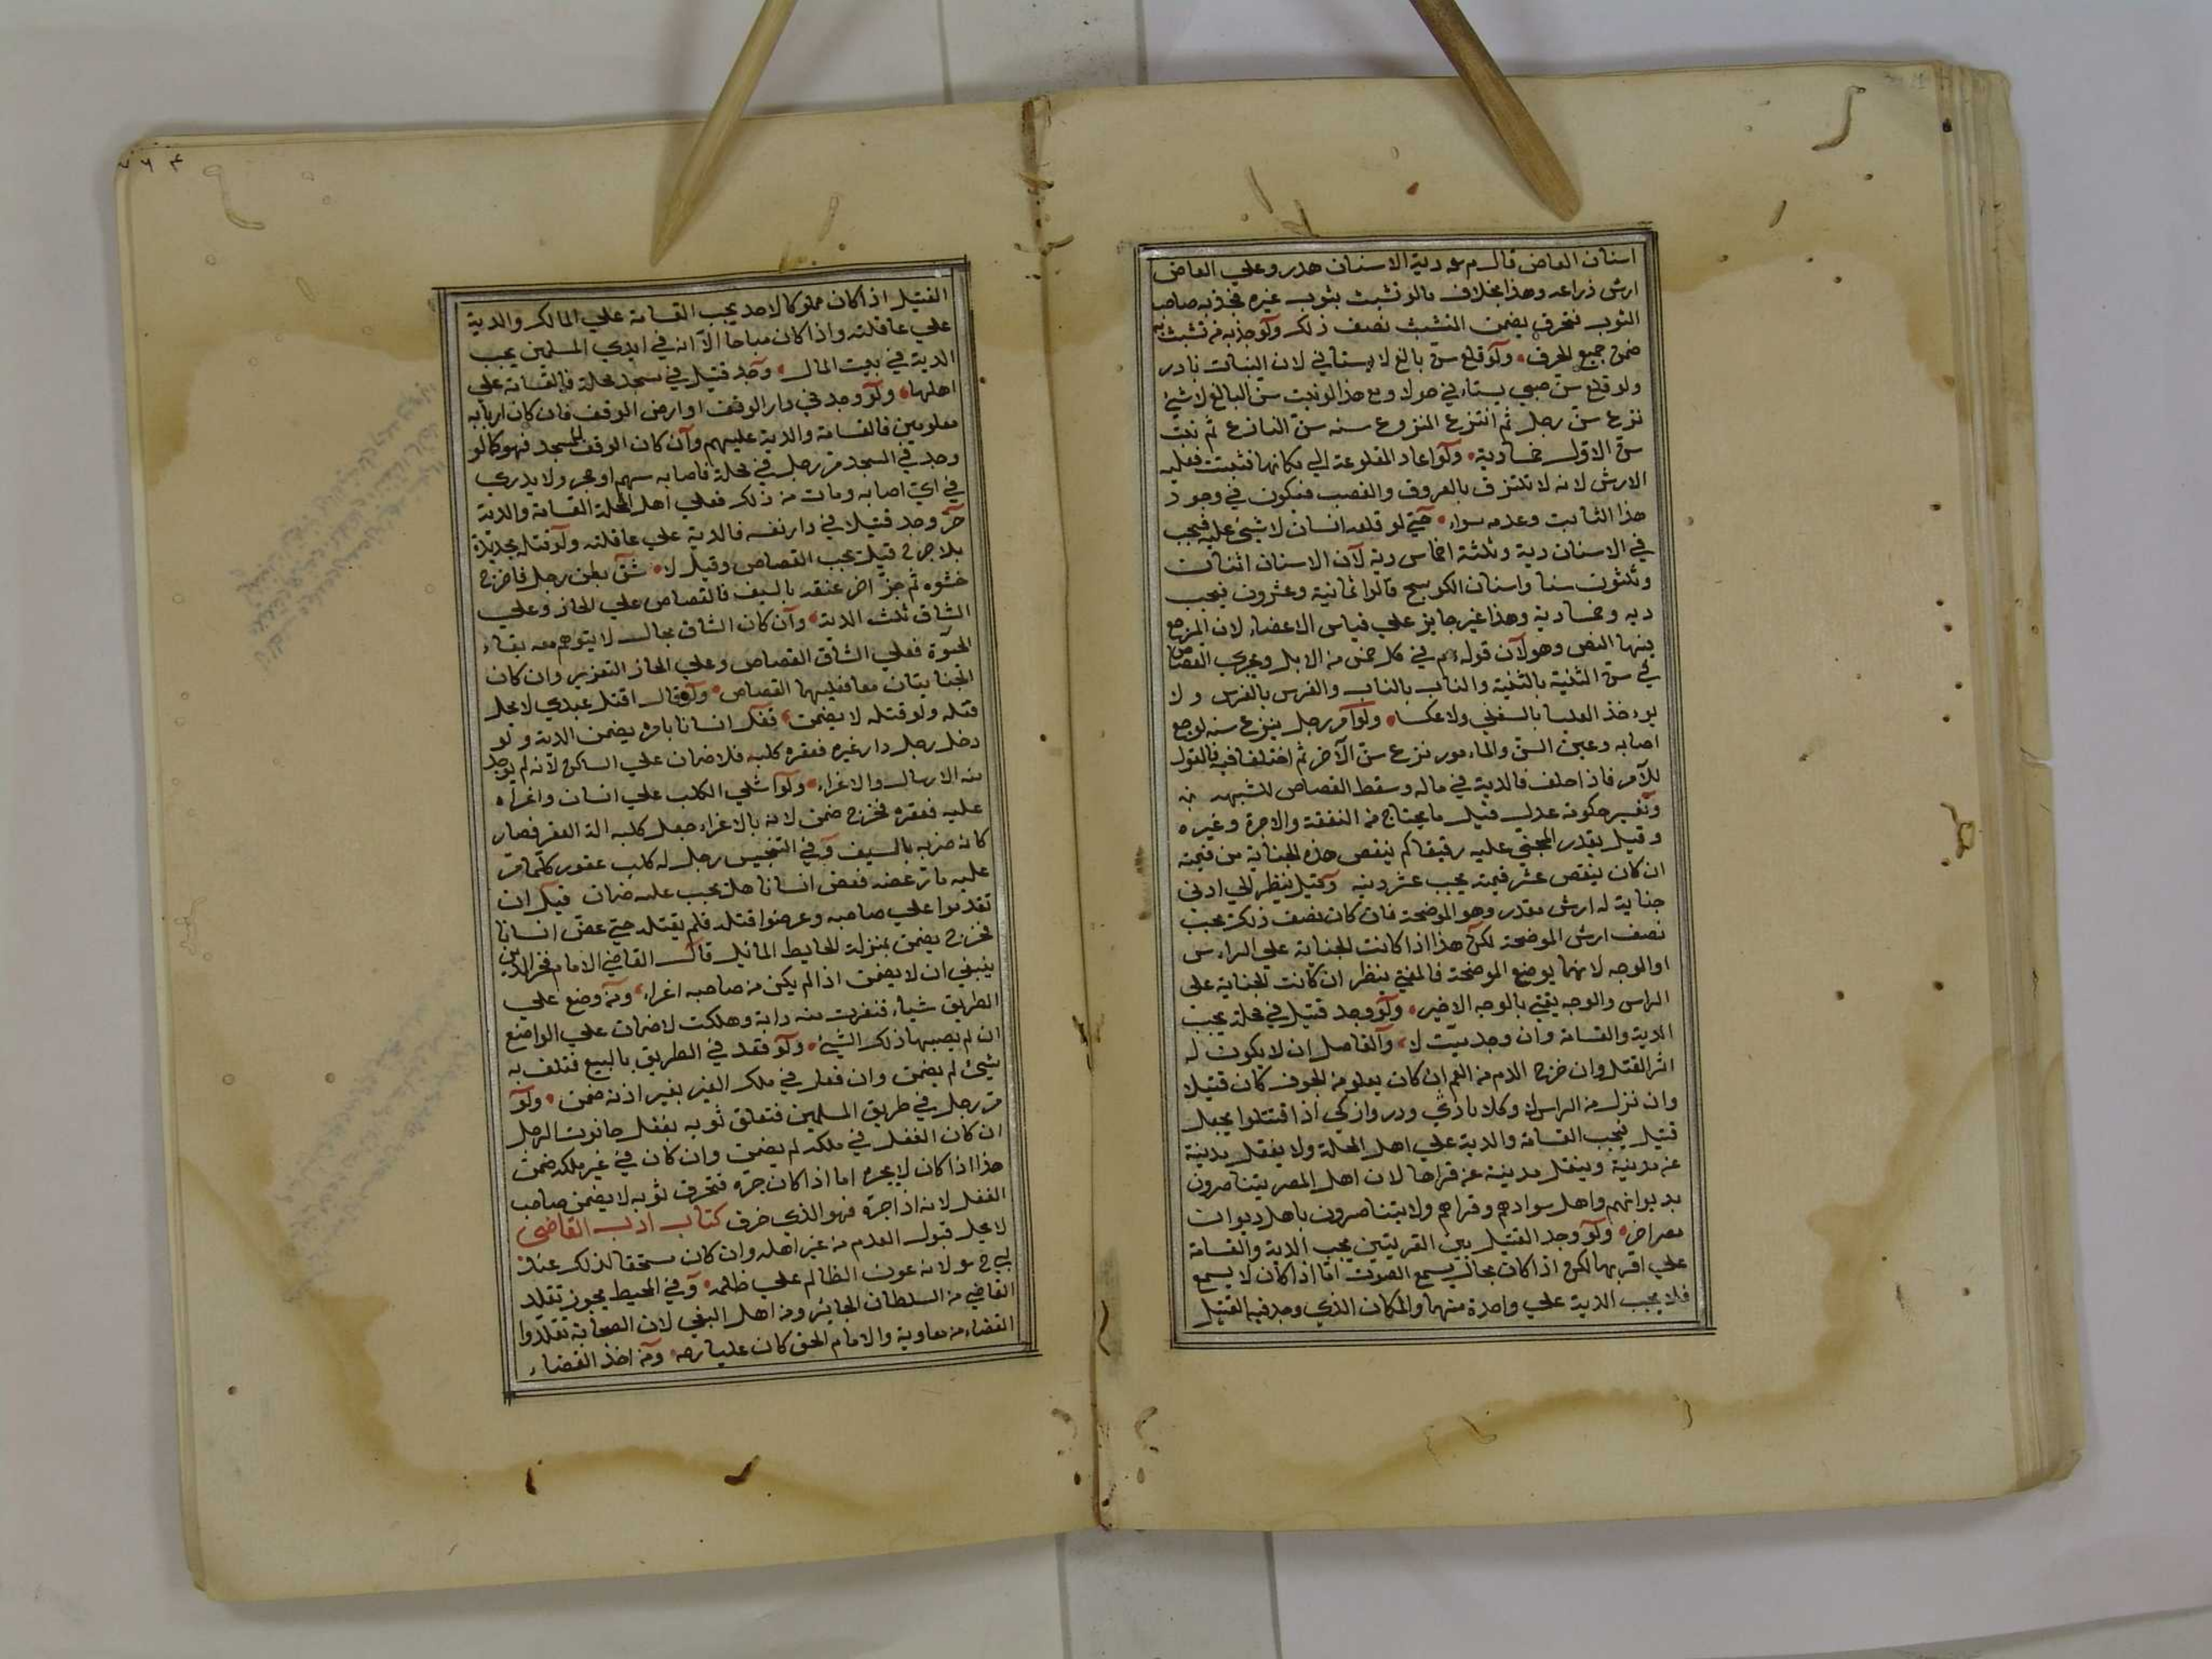 اسنان العاض قال م عو دية الاسنان هدر وعلي العاض
ارش ذراعه وهذا بخلاف ما لو تشبث بثوب غيره فجذبه صاحب
الثوب فتخرق يضمن المتشبث نصف ذلك ولو جذبه من تشبث به
ضمن جميع الخرق ولو قلع سن بالغ لا يستاني لان النبات نادر
ولو قلع سن صبي يستاني حولا ومع هذا لو نبت سن البالغ لا شيئ
نزع سن رجل ثم انتزع المنزوع سنه سن النازع ثم نبت
سن الاول خمسماية ولو اعاد المقلوعة الي مكانها فثبتت فعليه
الارش لانه لا تلتزق بالعروق والعصب فيكون في وجود
هذا الثابت وعدمه سواء حتي لو قلعه انسان لا شيئ عليه فيجب
في الاسنان دية وثلثة اخماس دية لان الاسنان اثنان
وثلثون سنا واسنان الكوسج قالوا ثمانية وعشرون فيجب
دية وخمساديه وهذا غير جايز علي قياس الاعضاء لان المرجع
فيها النص وهو لان قوله م في كل خمس من الابل ويجري القصاص
في سن الثنية بالثنية والناب بالناب والضرس بالضرس ولا
يوءخذ العليا بالسفلي ولا عكسا ولو امر رجل بنزع سنه لوجع
اصابه وعين السن والماءمور نزع سن الآخر ثم اختلفا فيه فالقول
للآمر فاذا حلف فالدية في ماله وسقط القصاص للشبهه
وتفسير حكومة عدل قيل ما يحتاج من النفقة والاجرة وغيره
وقيل يقدر المجني عليه رقيقا كم ينقص هذه الجناية من قيمته
ان كان ينقص عشر قيمته يجب عشر ديته وقيل ينظر الي ادني
جناية له ارش مقدر وهو الموضحة فان كان نصف ذلك يجب
نصف ارش الموضحة لكن هذا اذا كانت الجناية علي الراءس
او الوجه لانهما يوضع الموضحة فالمفتي ينظر ان كانت الجناية علي
الراس والوجه يفتي بالوجه الاخير ولو وجد قتيل في محلة يجب
الدية والقسامة وان وجد ميت لا والفاصل ان لا يكون له
اثر القتل وان خرج الدم من الفم ان كان يعلو من الجوف كان قتيلا
وان نزل من الراس لا وكلا باذي ودروازكي اذا اقتتلوا يجعل
قتيل فيجب القسامة والدية علي اهل المحلة ولا يعقل مدينة
عن مدينة ويعقل مدينة عن قراها لان اهل المصر يتناصرون
بديوانهم واهل سوادهم وقراهم ولا يتناصرون باهل ديوان
مصر اخر ولو وجد القتيل بين القريتين يجب الدية والقسامة
علي اقربهما لكن اذا كان بحال يسمع الصوت اما اذا كان لا يسمع
فلا يجب الدية علي واحدة منهما والمكان الذي وجد فيه القتيل
٧٦٤
القتيل اذا كان مملوكا لاحد يجب القسامة علي المالك والدية
علي عاقلته واذا كان مباحا الا انه في ايدي المسلمين يجب
الدية في بيت المال وجد قتيل في مسجد محلة فالقسامة علي
اهلها ولو وجد في دار الوقف او ارض الوقف فان كان اربابه
معلومين فالقسامة والدية عليهم وان كان الوقف للمسجد فهو كما لو
وجد في المسجد مر رجل في محلة فاصابه سهم او حجر ولا يدري
في اي اصابه ومات من ذلك فعلي اهل المحلة القسامة والدية
حر وجد قتيلا في دار نفسه فالدية علي عاقلته ولو قتله بحديدة
بلا جرح قيل يجب القصاص وقيل لا شق بطن رجل فاخرج
حشوه ثم جز اخر عنقه بالسيف فالقصاص علي الجاز وعلي
الشاق ثلث الدية وان كان الشاق بحال لا يتوهم معه بقاء
الحيوة فعلي الشاق القصاص وعلي الجاز التعزير وان كان
الجنايتان معا فعليهما القصاص ولو قال اقتل عبدي لا يحل
قتله ولو قتله لا يضمن فقتل انسانا بامره يضمن الدية ولو
دخل رجل دار غيره فعقره كلبه فلا ضمان علي الساكن لانه لم يوجد
منه الارسال والاغراء ولو اشلي الكلب علي انسان واغراه
عليه فعقره فجرح ضمن لانه بالاغراء جعل كلبه الة العقر فصار
كانه ضربه بالسيف وفي التجنيس رجل له كلب عقور كلما مر
عليه مار عضه فعض انسانا هل يجب عليه ضمان قيل ان
تقدموا علي صاحبه وعرضوا قتله فلم يقتله حتي عض انسانا
فجرح يضمن بمنزلة الحايط المائل قال القاضي الامام فخر الدين
ينبغي ان لا يضمن اذا لم يكن من صاحبه اغراء ومن وضع علي
الطريق شياء فنفرت منه دابة وهلكت لا ضمان علي الواضع
ان لم يصبها ذلك الشيئ ولو قعد في الطريق بالبيع فتلف به
شيئ لم يضمن وان فعل في ملك الغير بغير اذنه ضمن ولو
مر رجل في طريق المسلمين فتعلق ثوبه بقفل حانوت الرجل
ان كان القفل في ملكه لم يضمن وان كان في غير ملكه ضمن
هذا اذا كان لا يجره اما اذا كان جره فتخرق ثوبه لا يضمن صاحب
القفل لانه اذا جره فهو الذي خرق كتاب ادب القاضي
لا يحل قبول العدم من غير اهله وان كان مستحقا لذلك عند
لانه عون الظالم علي ظلمه وفي المحيط يجوز تقلد
القاضي من السلطان الجائر ومن اهل البغي لان الصحابة تقلدوا
القضاء من معاوية والامام الحق كان عليا رضه ومن اخذ القضاء